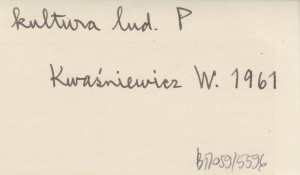 kultura lud. P
Kwaśniewicz W. 1961
B17059/5596